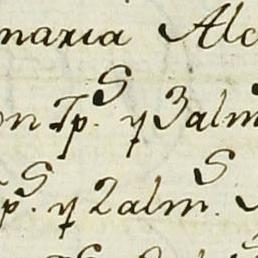 maria Alc
on Tp.s y 3 alm
p.s y 2 alm.s